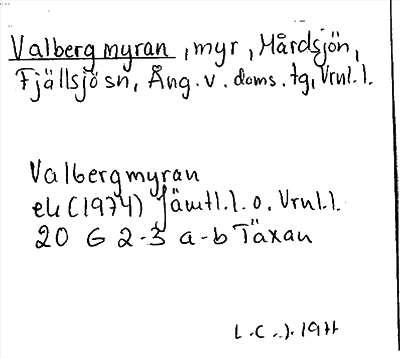 Valbergmyran, myr, Mårdsjön,
Fjällsjö sn, Ång. v. doms. tg, Vrnl. l.
Valbergmyran
ek (1974) Jämtl. l. o. Vrnl. l.
20 G 2-3 a-b Täxan
L.C.J. 1977